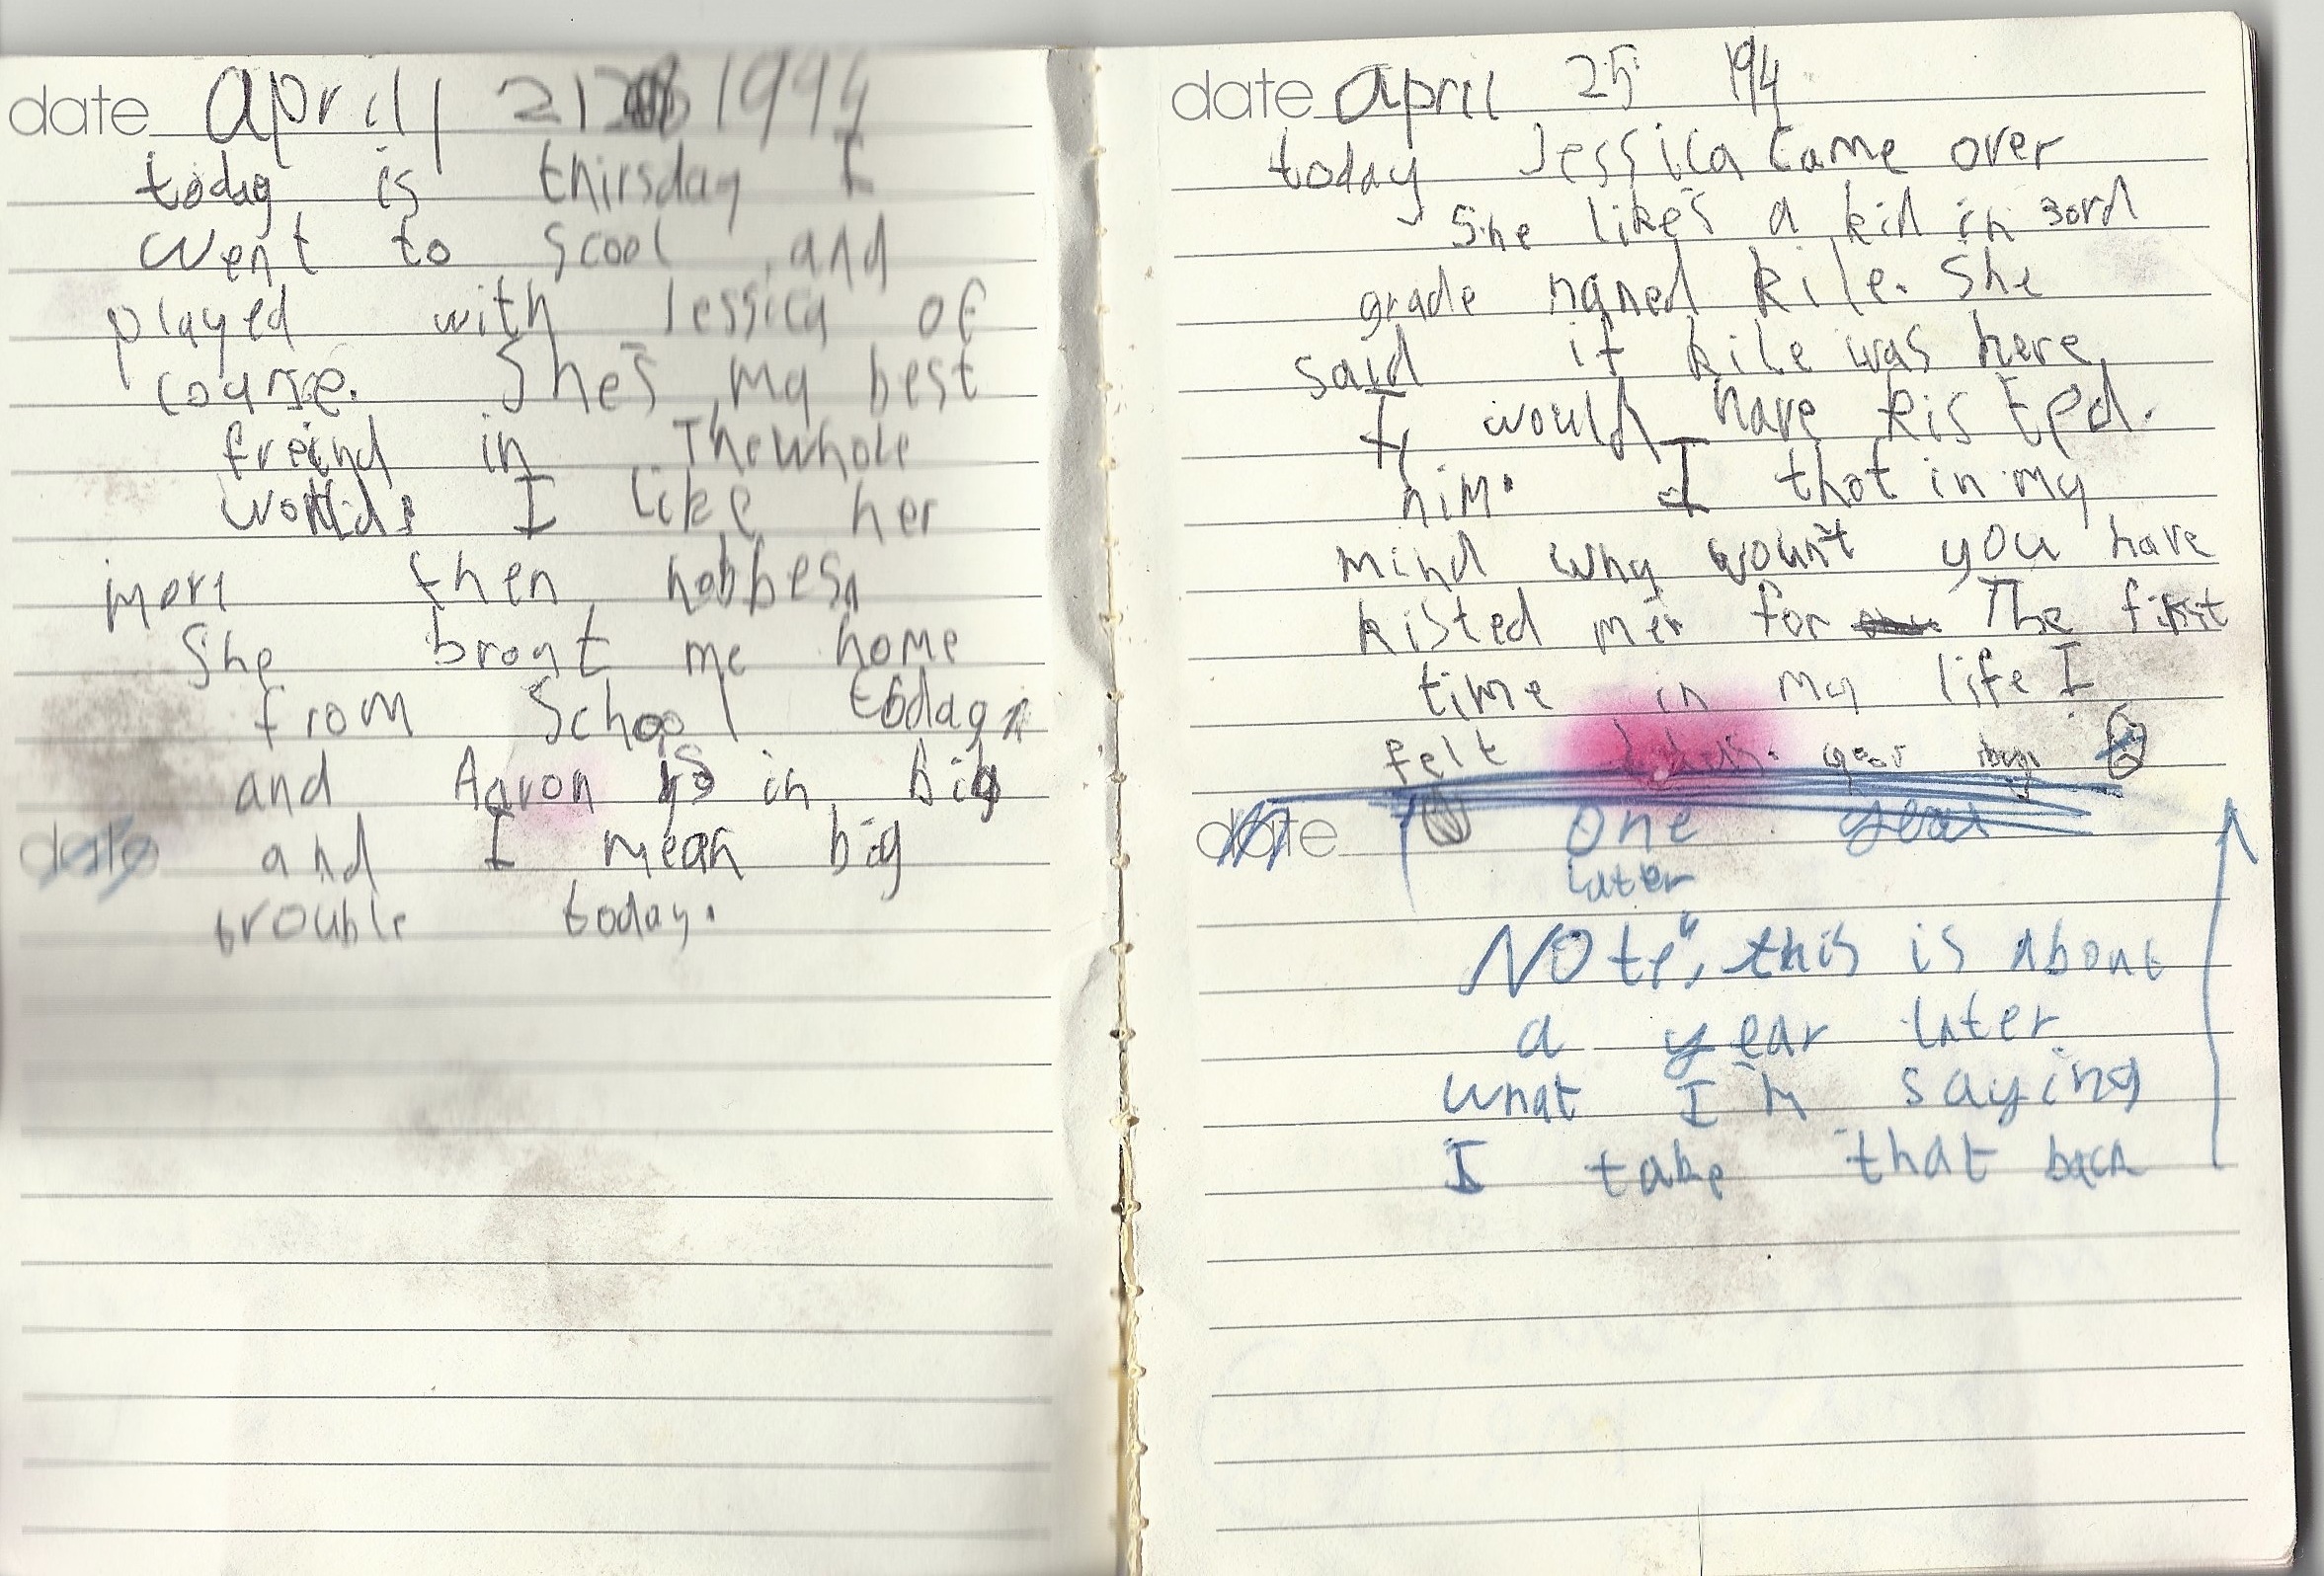 date April, 21 1994
today is thirsday I
went to scool and
played with Jessica of
course. She's my best
freind in The whole
world. I like her
more then hobbes,
She broat me home
from School today,
and Aaron is in big
date and I mean big
trouble today.
date April 25 194
today Jessica came over
She likes a kid in 3ord
grade named kile. She
said if kile was here
I would have kisted.
him. I thot in my
mind why wount you have
kisted me for The first
time in my life I
felt
date One year
later
NOte", this is about
a year later
what I'm saying
I take that back